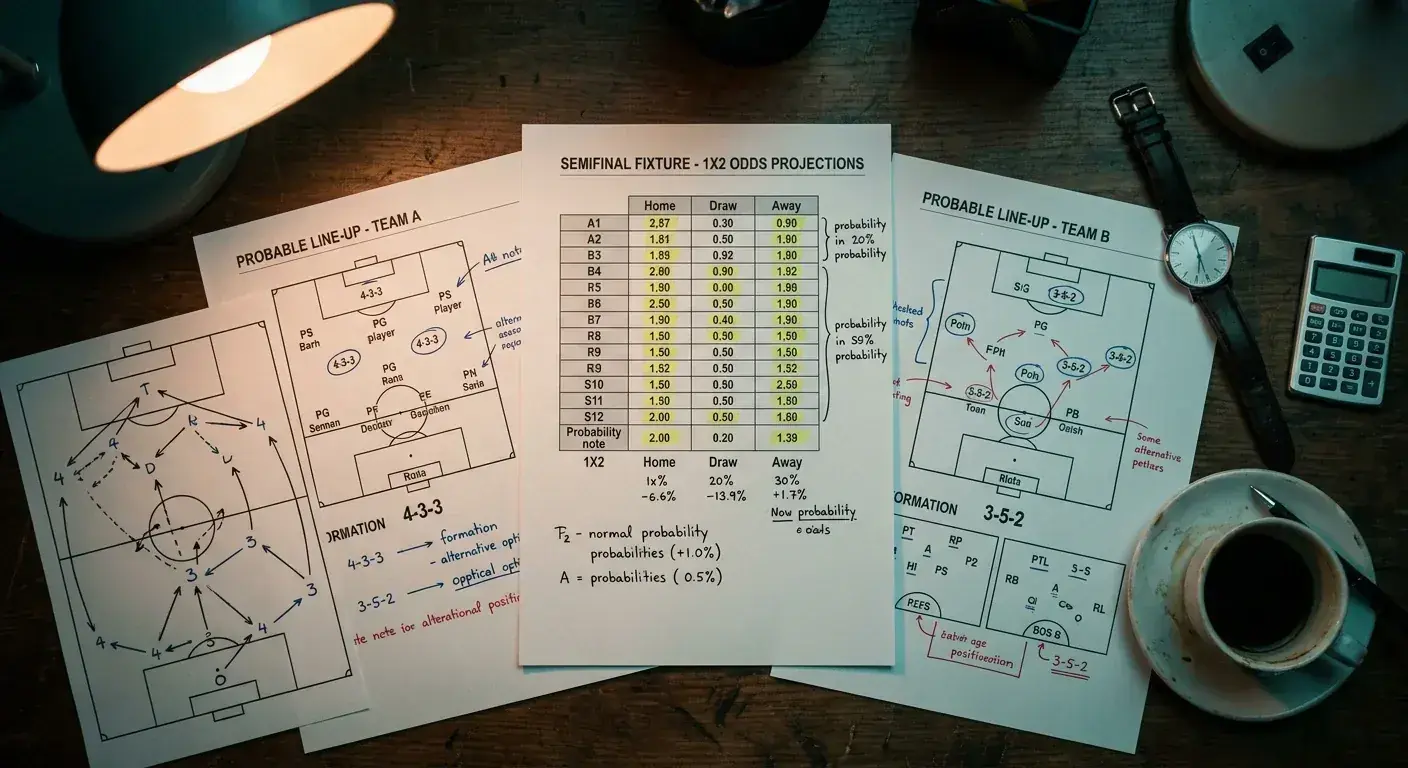 SEMIFINAL FIXTURE - 1X2 ODDS PROJECTIONS
Home Draw Away
A1 2,87 0.30 0.90
A2 1.81 0.50 1.90
B3 1.89 0.92 1.80
B4 2.80 0.90 1.92
R5 1.90 0.00 1.98
B6 2.50 0.50 1.90
B7 1.90 0.40 1.90
R8 1.50 0.90 1.50
R9 1.50 0.50 1.50
R9 1.52 0.50 1.52
S10 1.50 0.50 2.50
S11 1.50 0.50 1.80
S12 2.00 0.50 1.80
Probability
note 2.00 0.20 1.39
probability
in 20%
probability
probability
in S9%
probability
1X2 Home Draw Away
1x% 20% 30%
-6.6% -13.9% +1.7%
Now probability
F2 - normal probability
probabilities (+1.0%)
A = probabilities ( 0.5%)
PROBABLE LINE-UP - TEAM A
4-3-3
PS
Player
PS
Barh
PG
player
4-3-3
4-3-3
PG
Rana
PN
Saria
PG
Sennan
PF
EE
Rona
4-3-3
4-3-3 formation
- alternative opti
3-5-2 opptical opt
alterational positi
T
4
R
4
4
D
3
3
3
4
4
4
3
O
PROBABLE LINE-UP - TEAM B
SIG
PG
Potn
FPH
3-5-2
3-5-2
Potn
Toan
Sai
PB
Oeish
Some
alternative
petlars
Rlota
3-5-2
PT
RP
A
P2
HI
PS
REFS
PTL
S-S
RB
A
RL
O
BOS 8
3-5-2